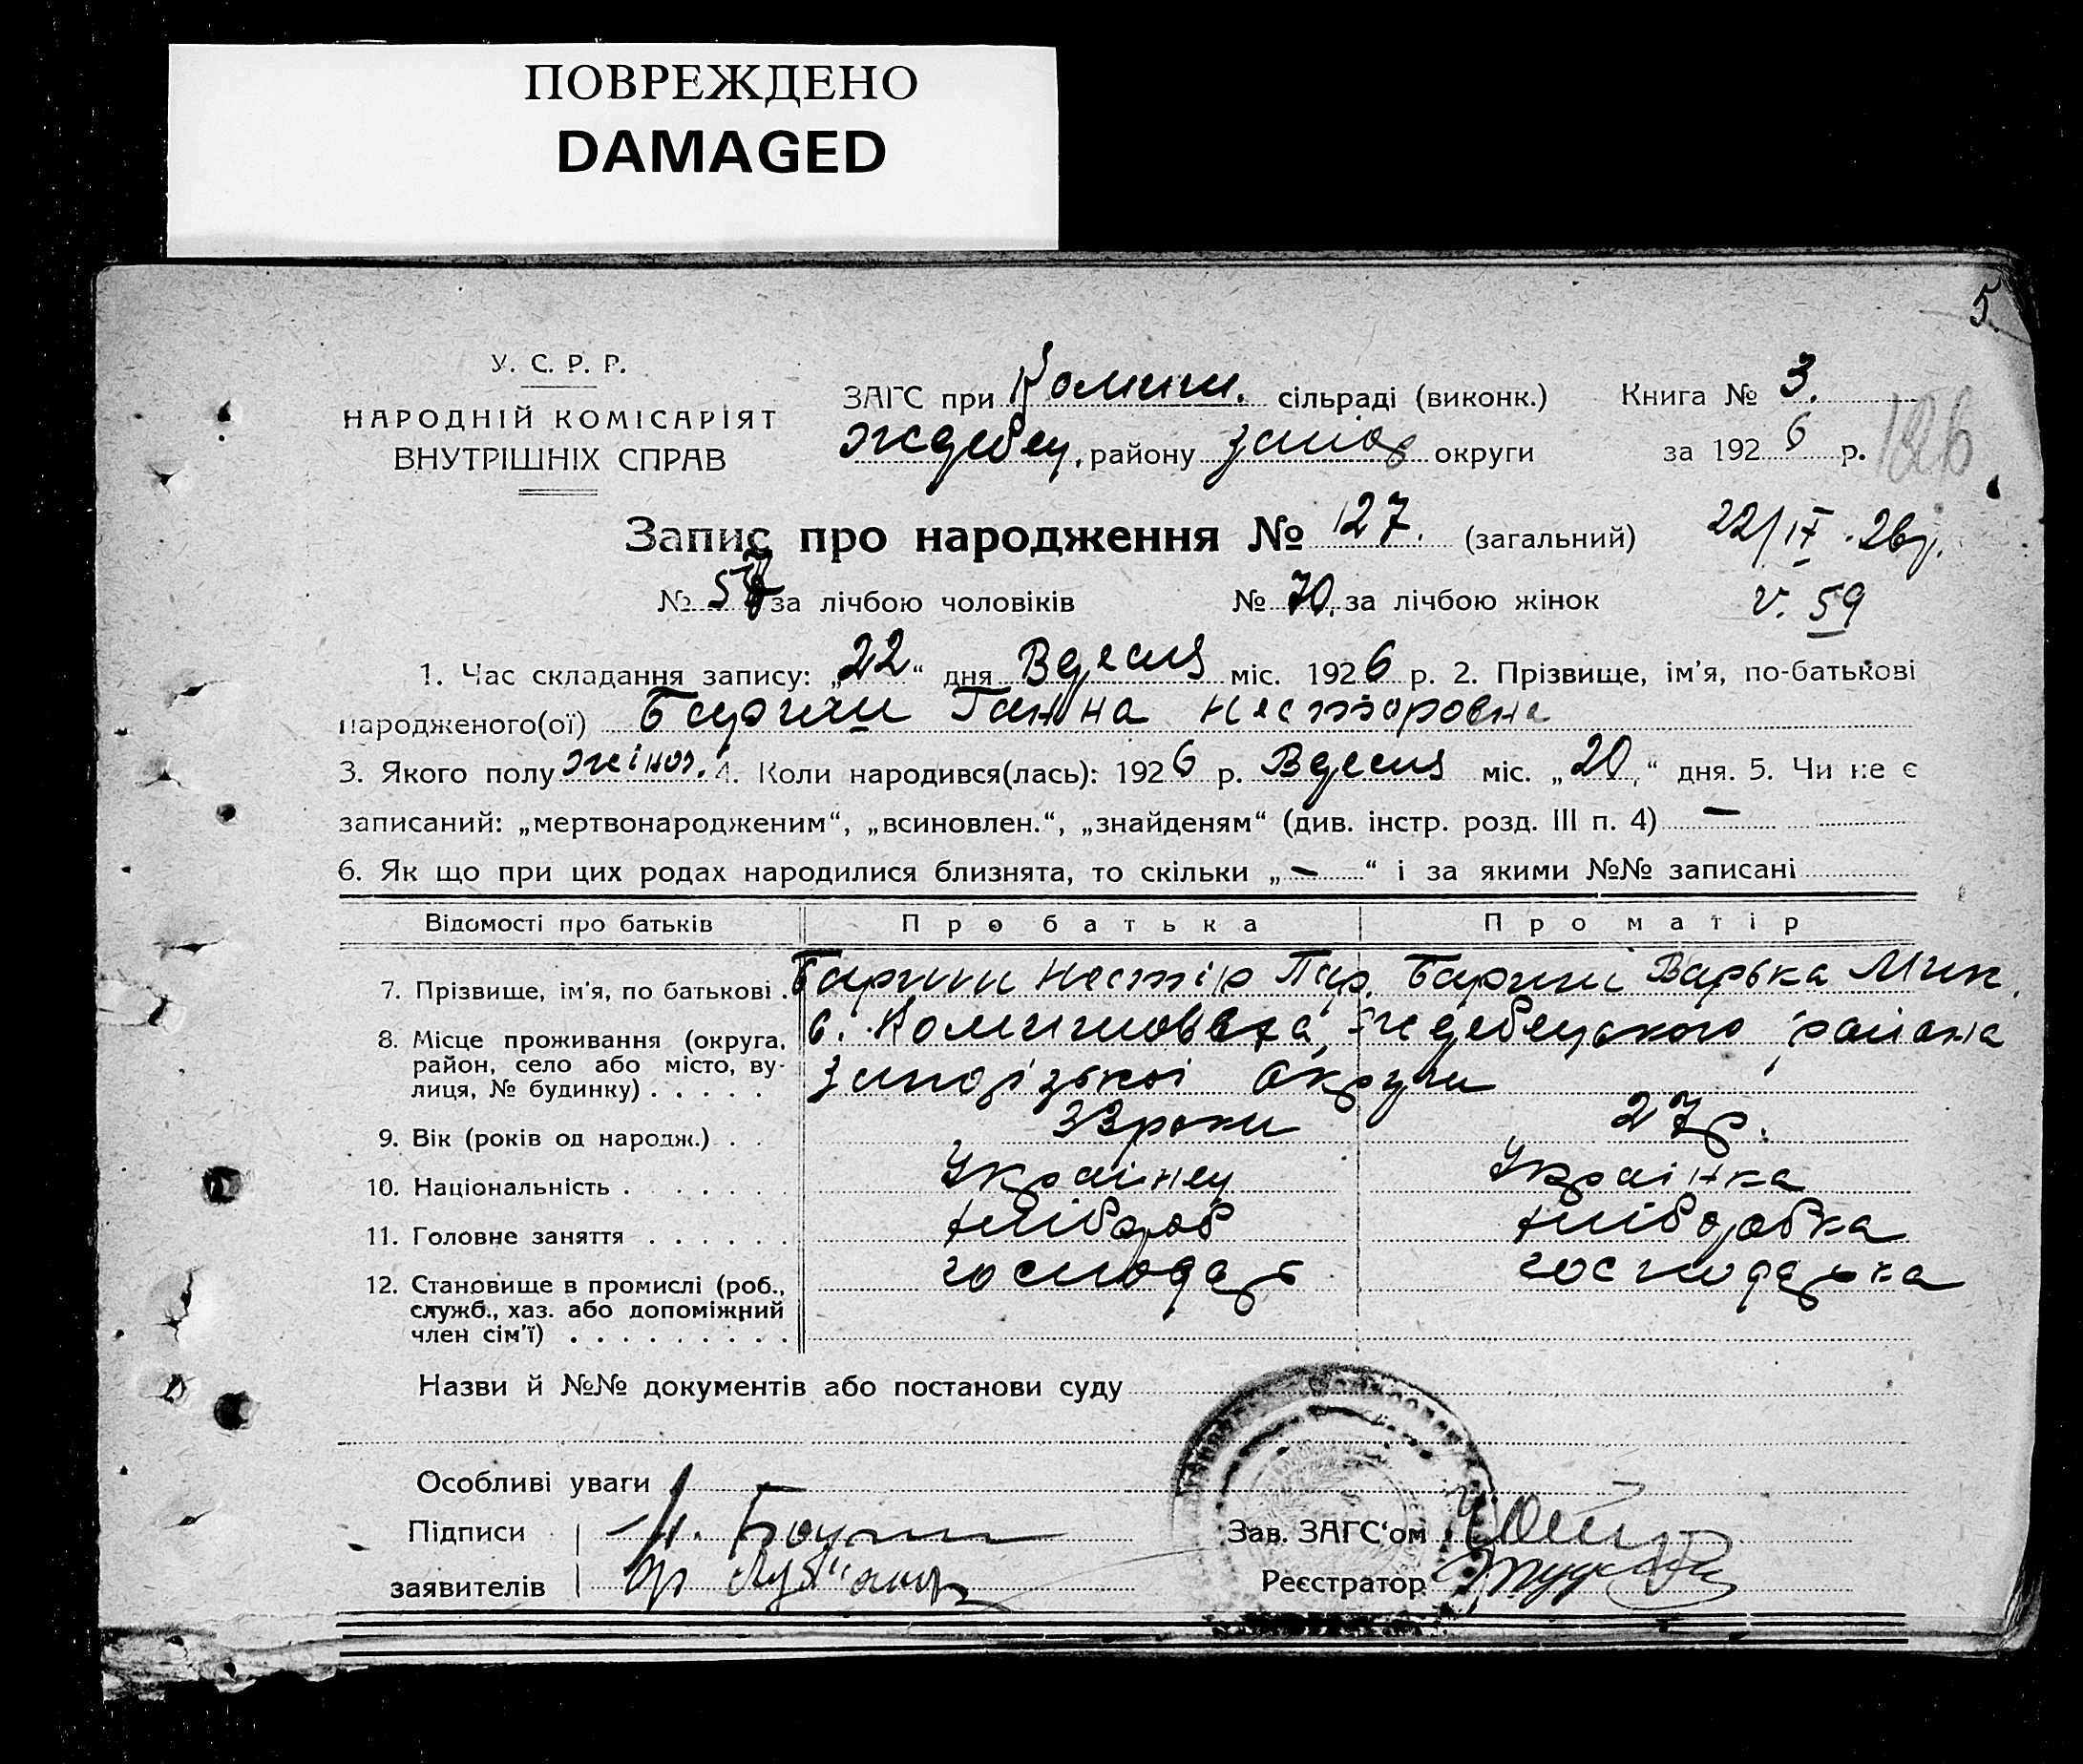 ПОВРЕЖДЕНО
DAMAGED
5
У. С. Р. Р.
НАРОДНІЙ КОМІСАРІЯТ
ВНУТРІШНІХ СПРАВ
ЗАГС при Комиш. сільраді (виконк.) Книга № 3.
Жеребец. району Запоріз округи за 1926 р. 126
Запис про народження № 127. (загальний) 22/IX 26 р.
№ 57 за лічбою чоловіків № 70. за лічбою жінок v. 59
1. Час складання запису: „22“ дня Вересня міс. 1926 р. 2. Прізвище, ім'я, по-батькові
народженого(ої) Ганна Несторовна
3. Якого полу жіноч. 4. Коли народився(лась): 1926 р. Вересня міс. „20“ дня. 5. Чи не є
записаний: „мертвонародженим“, „всиновлен.“, „знайденям“ (див. інстр. розд. III п. 4) —
6. Як що при цих родах народилися близнята, то скільки „—“ і за якими №№ записані
Відомості про батьків Про батька Про матір
7. Прізвище, ім'я, по батькові . Нестір Варька Мик.
8. Місце проживання (округа, район, село або місто, вулиця, № будинку) . . . . . с. Комишоваха, Жеребецького району
Запорізької Округи
9. Вік (років од народж.) . . 33 роки 27 р.
10. Національність . . . . . . . Українец Українка
11. Головне заняття . . . . . . хлібороб хліборобка
12. Становище в промислі (роб., служб., хаз. або допоміжний член сім'ї) . . . . . . . . . господарь господарька
Назви й №№ документів або постанови суду
Особливі уваги
Підписи Н. Зав. ЗАГС'ом
заявителів Реєстратор